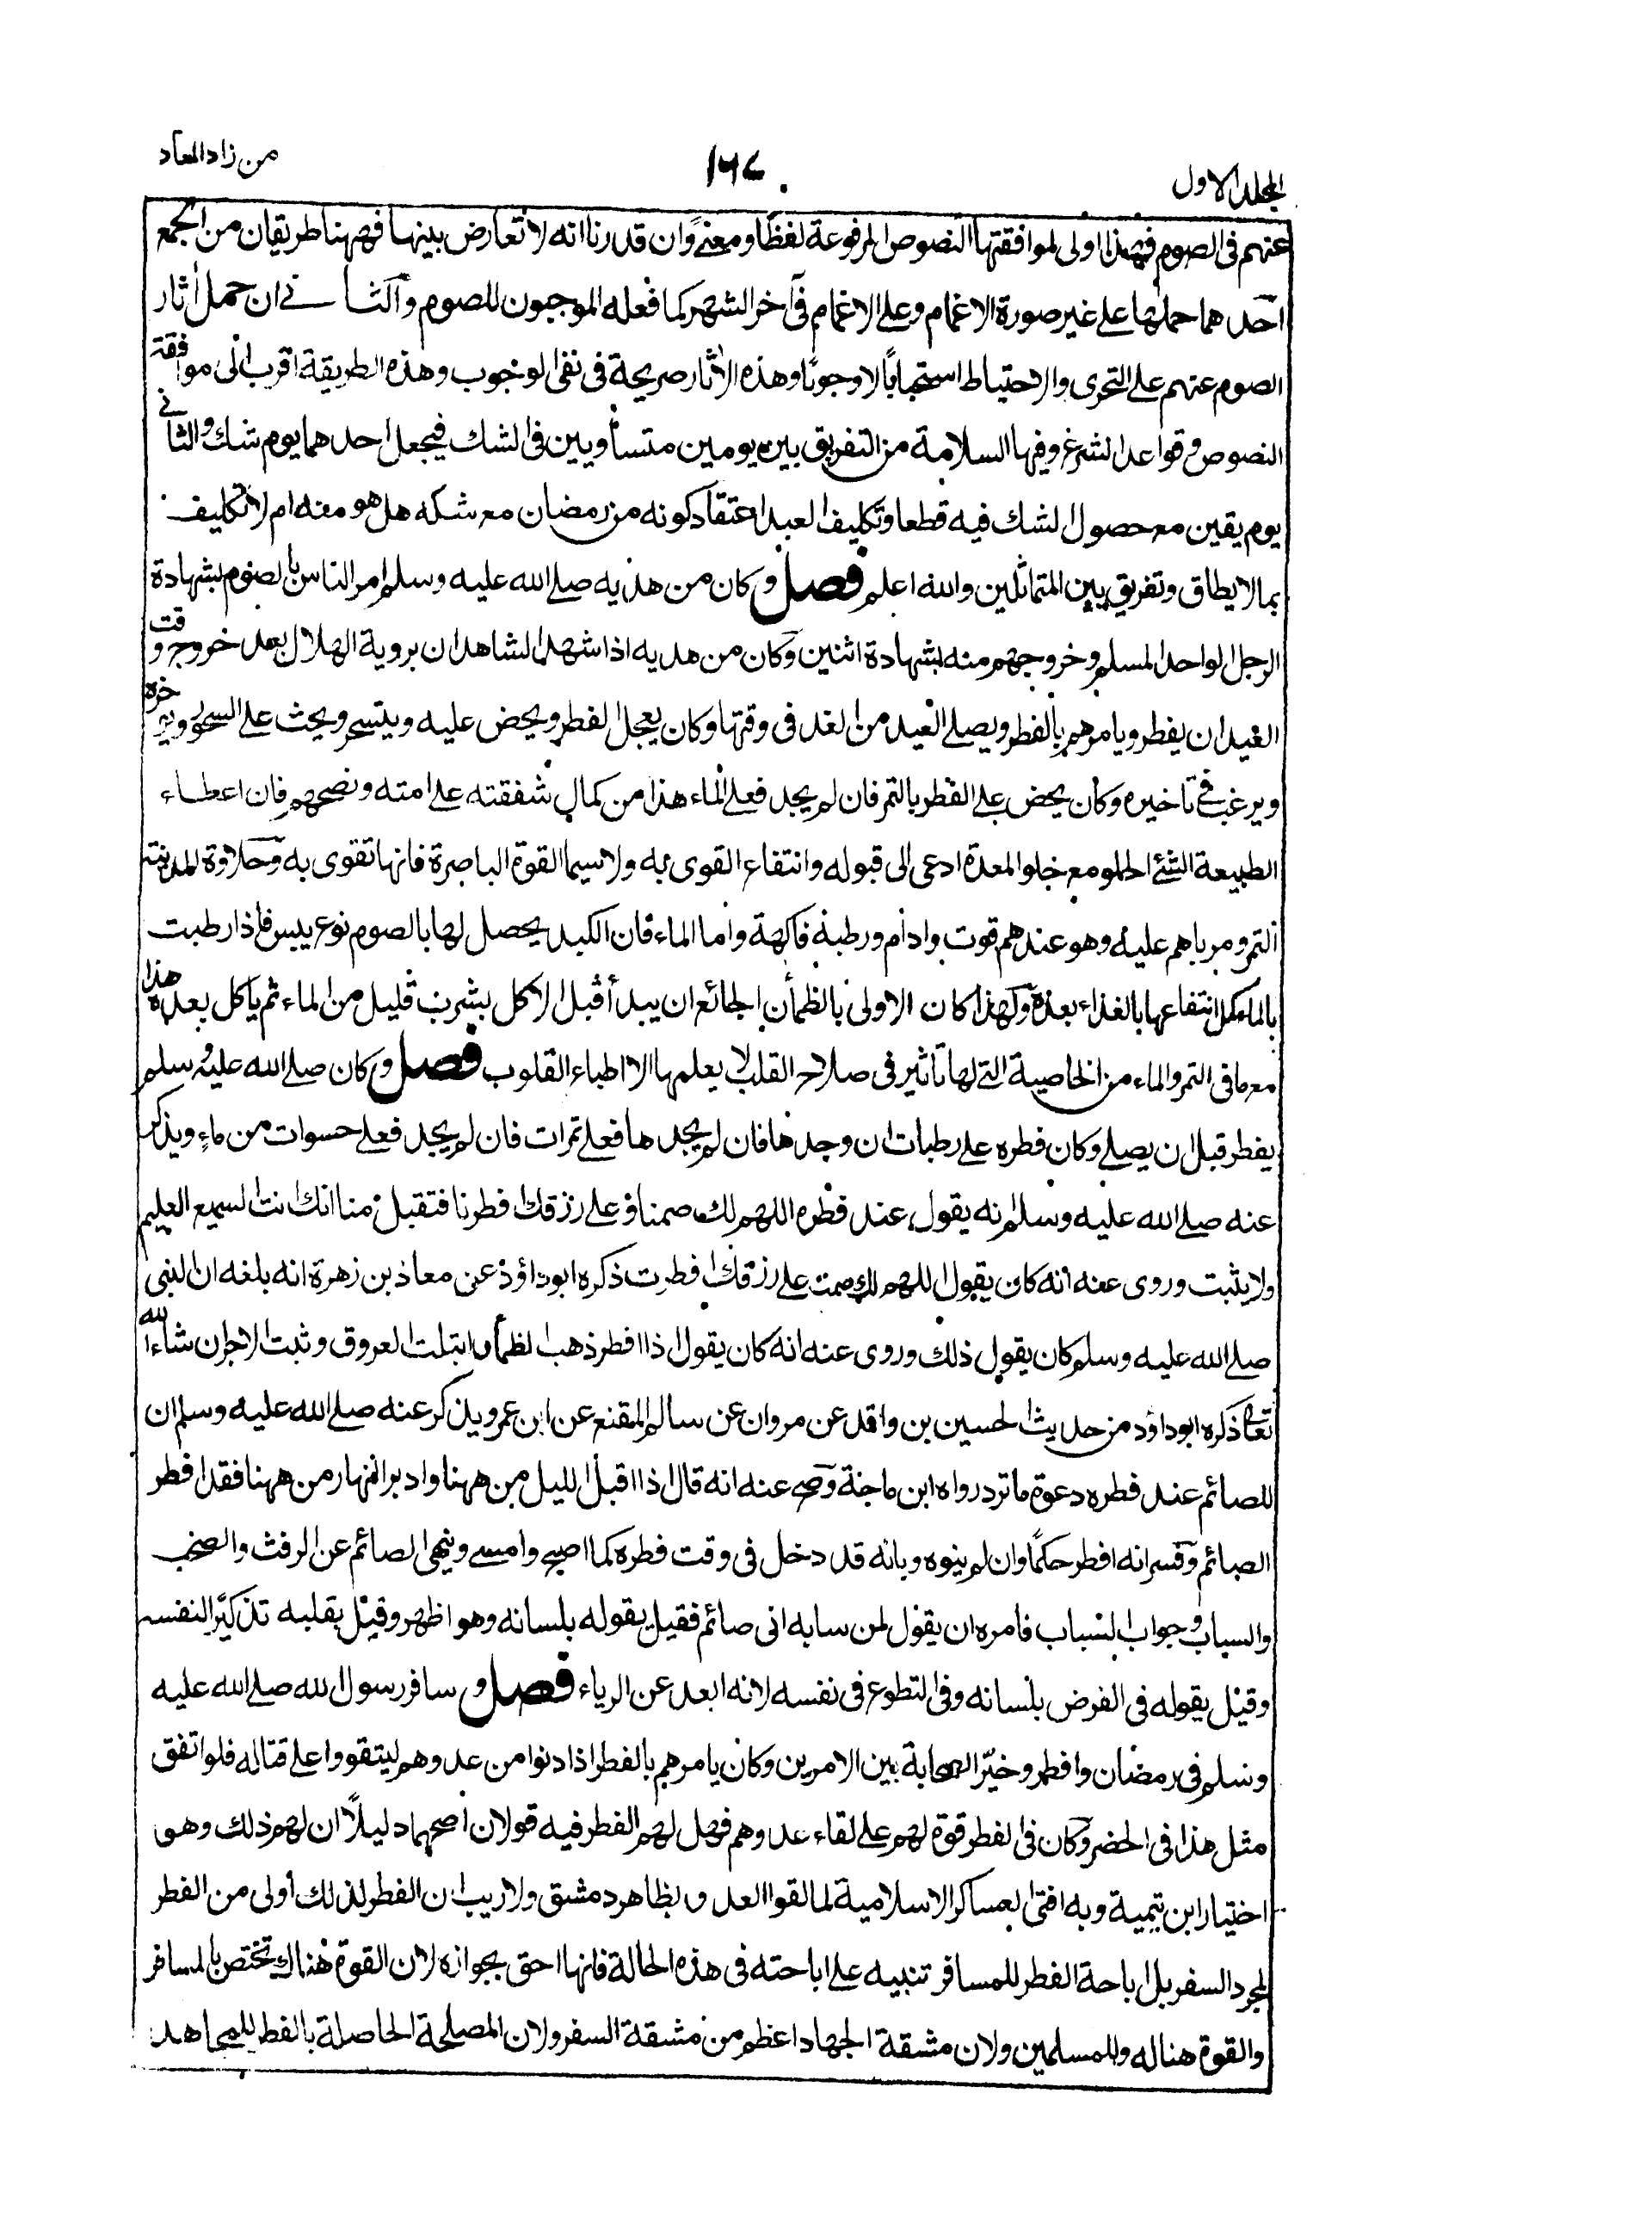 المجلد الاول
١٦٧
من زاد المعاد
عنهم فى الصوم فهذا اولى لموافقتها النصوص المرفوعة لفظًا ومعنىً وان قدرنا انه لا تعارض بينها فههنا طريقان من الجمع
احدهما حملها على غير صورة الاغمام وعلى الاغمام فى آخر الشهر كما فعله الموجبون للصوم والثانے ان حمل آثار
الصوم عنهم على التحرى والاحتياط استحبابًا لا وجوبًا وهذه الآثار صريحة فى نفى الوجوب وهذه الطريقة اقرب الى موافقة
النصوص وقواعد الشرع وفيها السلامة من التفريق بين يومين متساويين فى الشك فيجعل احدهما يوم شك والثانے
يوم يقين مع حصول الشك فيه قطعا وتكليف العبد اعتقاد كونه من رمضان مع شكه هل هو منه ام لا تكليف
بما لا يطاق وتفريق بين المتماثلين والله اعلم فصل وكان من هديه صلى الله عليه وسلم امر الناس بالصوم بشهادة
الرجل الواحد المسلم وخروجهم منه بشهادة اثنين وكان من هديه اذا شهد الشاهدان بروية الهلال بعد خروج وقت
العيد ان يفطر ويامرهم بالفطر ويصلے العيد من الغد فى وقتها وكان يعجل الفطر ويحض عليه ويتسحر ويحث على السحور ويوخره
ويرغب فے تاخيره وكان يحض على الفطر بالتمر فان لم يجد فعلى الماء هذا من كمال شفقته على امته ونصحهم فان اعطاء
الطبيعة الشئ الحلو مع خلو المعدة ادعى الى قبوله وانتفاع القوى به ولا سيما القوة الباصرة فانها تقوى به وحلاوة المدينة
التمر ومرباهم عليه وهو عندهم قوت وادام ورطبه فاكهة واما الماء فان الكبد يحصل لها بالصوم نوع يبس فاذا رطبت
بالماء كمل انتفاعها بالغذاء بعده ولهذا كان الاولى بالظمآن الجائع ان يبدأ قبل الاكل بشرب قليل من الماء ثم ياكل بعده هذا
مع ما فى التمر والماء من الخاصية التے لها تاثير فى صلاح القلب لا يعلمها الا اطباء القلوب فصل وكان صلى الله عليه وسلم
يفطر قبل ان يصلے وكان فطره على رطبات ان وجدها فان لم يجدها فعلى تمرات فان لم يجد فعلى حسوات من ماء ويذكر
عنه صلى الله عليه وسلم انه يقول عند فطره اللهم لك صمنا وعلى رزقك فطرنا فتقبل منا انك انت السميع العليم
ولا يثبت وروى عنه انه كان يقول اللهم لك صمت على رزقك افطرت ذكره ابوداؤد عن معاذ بن زهرة انه بلغه ان النبى
صلى الله عليه وسلم كان يقول ذلك وروى عنه انه كان يقول اذا افطر ذهب الظمأ وابتلت العروق وثبت الاجر ان شاء الله
تعالى ذكره ابوداؤد من حديث الحسين بن واقد عن مروان عن سالم المقنع عن ابن عمر ويذكر عنه صلى الله عليه وسلم ان
للصائم عند فطره دعوة ما ترد رواه ابن ماجة وصح عنه انه قال اذا اقبل الليل من ههنا وادبر النهار من ههنا فقد افطر
الصائم وفسر انه افطر حكمًا وان لم ينوه وبانه قد دخل فى وقت فطره كما اصبح وامسے ونهى الصائم عن الرفث والصخب
والسباب وجواب السباب فامره ان يقول لمن سابه انى صائم فقيل يقوله بلسانه وهو اظهر وقيل بقلبه تذكيرًا لنفسه
وقيل يقوله فى الفرض بلسانه وفى التطوع فى نفسه لانه ابعد عن الرياء فصل وسافر رسول الله صلى الله عليه
وسلم فى رمضان وافطر وخيّر الصحابة بين الامرين وكان يامرهم بالفطر اذا دنوا من عدوهم ليتقووا على قتاله فلو اتفق
مثل هذا فى الحضر وكان فى الفطر قوة لهم على لقاء عدوهم فهل لهم الفطر فيه قولان اصحهما دليلًا ان لهم ذلك وهو
اختيار ابن تيمية وبه افتى العساكر الاسلامية لما لقوا العدو بظاهر دمشق ولا ريب ان الفطر لذلك أولى من الفطر
لمجرد السفر بل اباحة الفطر للمسافر تنبيه على اباحته فى هذه الحالة فانها احق بجوازه لان القوة هناك تختص بالمسافر
والقوة هنا له وللمسلمين ولان مشقة الجهاد اعظم من مشقة السفر ولان المصلحة الحاصلة بالفطر للمجاهد